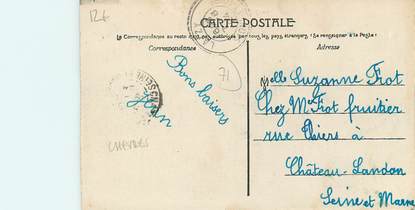 12f
CARTE POSTALE
La Correspondance au recto n'est pas acceptée par tous les pays étrangers. (Se renseigner à la Poste)
Correspondance
Adresse
71
Bons baisers
Melle Suzanne Frot
Chez Mr Frot fruitier
rue Thiers à
Château-Landon
Seine et Marne